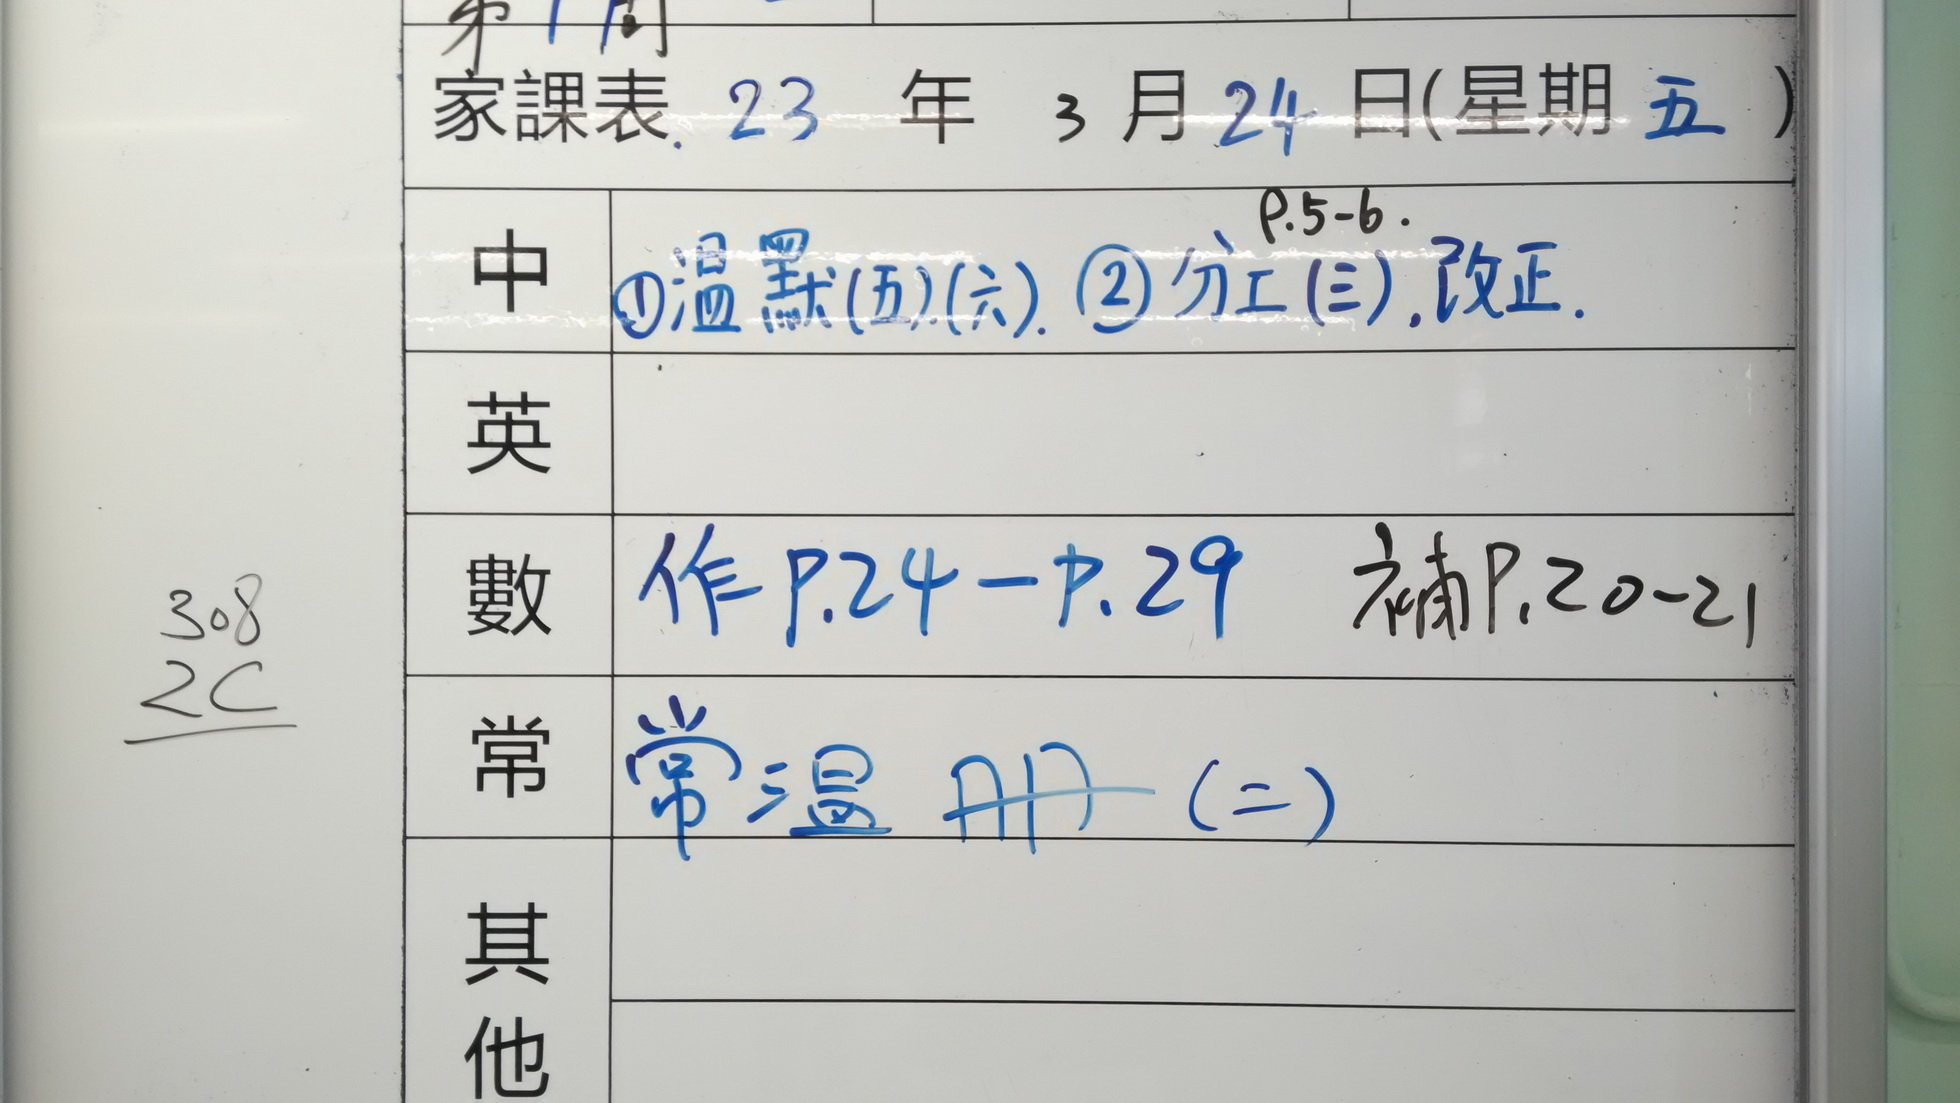 家課表. 23 年 3 月 24 日(星期 五 )
P.5-6.
中 ①溫默(五).(六). ②分工(三).改正.
英
數 作 P.24-P.29 補P.20-21
308
2C
常 常溫 冊 (二)
其
他